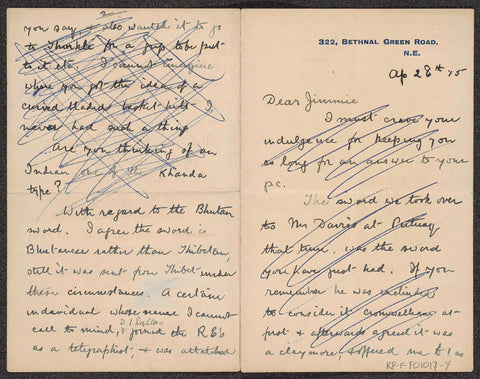 322, BETHNAL GREEN ROAD,
N.E.
Ap 28th 15
Dear Jimmie
I must crave your
indulgence for keeping you
so long for an answer to your
p.c.
The sword we took over
to Mr Davis at Putney
that time, was the sword
you have just had. If you
remember he was inclined
to consider it Cromwellian at
first & afterwards agreed it was
a claymore, & offered me £1 as
RP-F-F01017-Y
2
you say, & also wanted it to go
to Thurkle for a grip to be put
to it etc. I cannot imagine
where you got the idea of a
curved bladed basket hilt I
never had such a thing
Are you thinking of an
Indian one of the Khanda
type?
With regard to the Bhutan
sword. I agree the sword is
Bhutanese rather than Thibetan,
still it was sent from Thibet under
these circumstances. A certain
individual whose name I cannot
call to mind, & joined the R.E's
as a telegraphist, & was attached